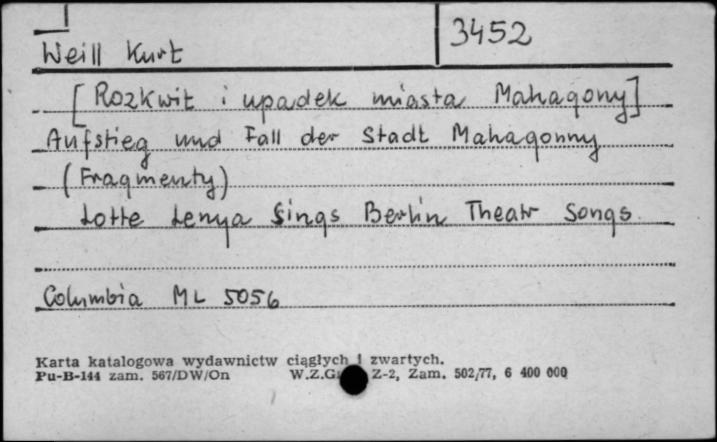 3452
Weill Kurt
[Rozkwit i upadek miasta Mahagony]
Aufstieg und Fall der Stadt Mahagonny
(Fragmenty)
Lotte Lenya Sings Berlin Theatr Songs
Columbia ML 5056
Karta katalogowa wydawnictw ciągłych i zwartych.
Pu-B-144 zam. 567/DW/On W.Z.G. Z-2, Zam. 502/77, 6 400 000